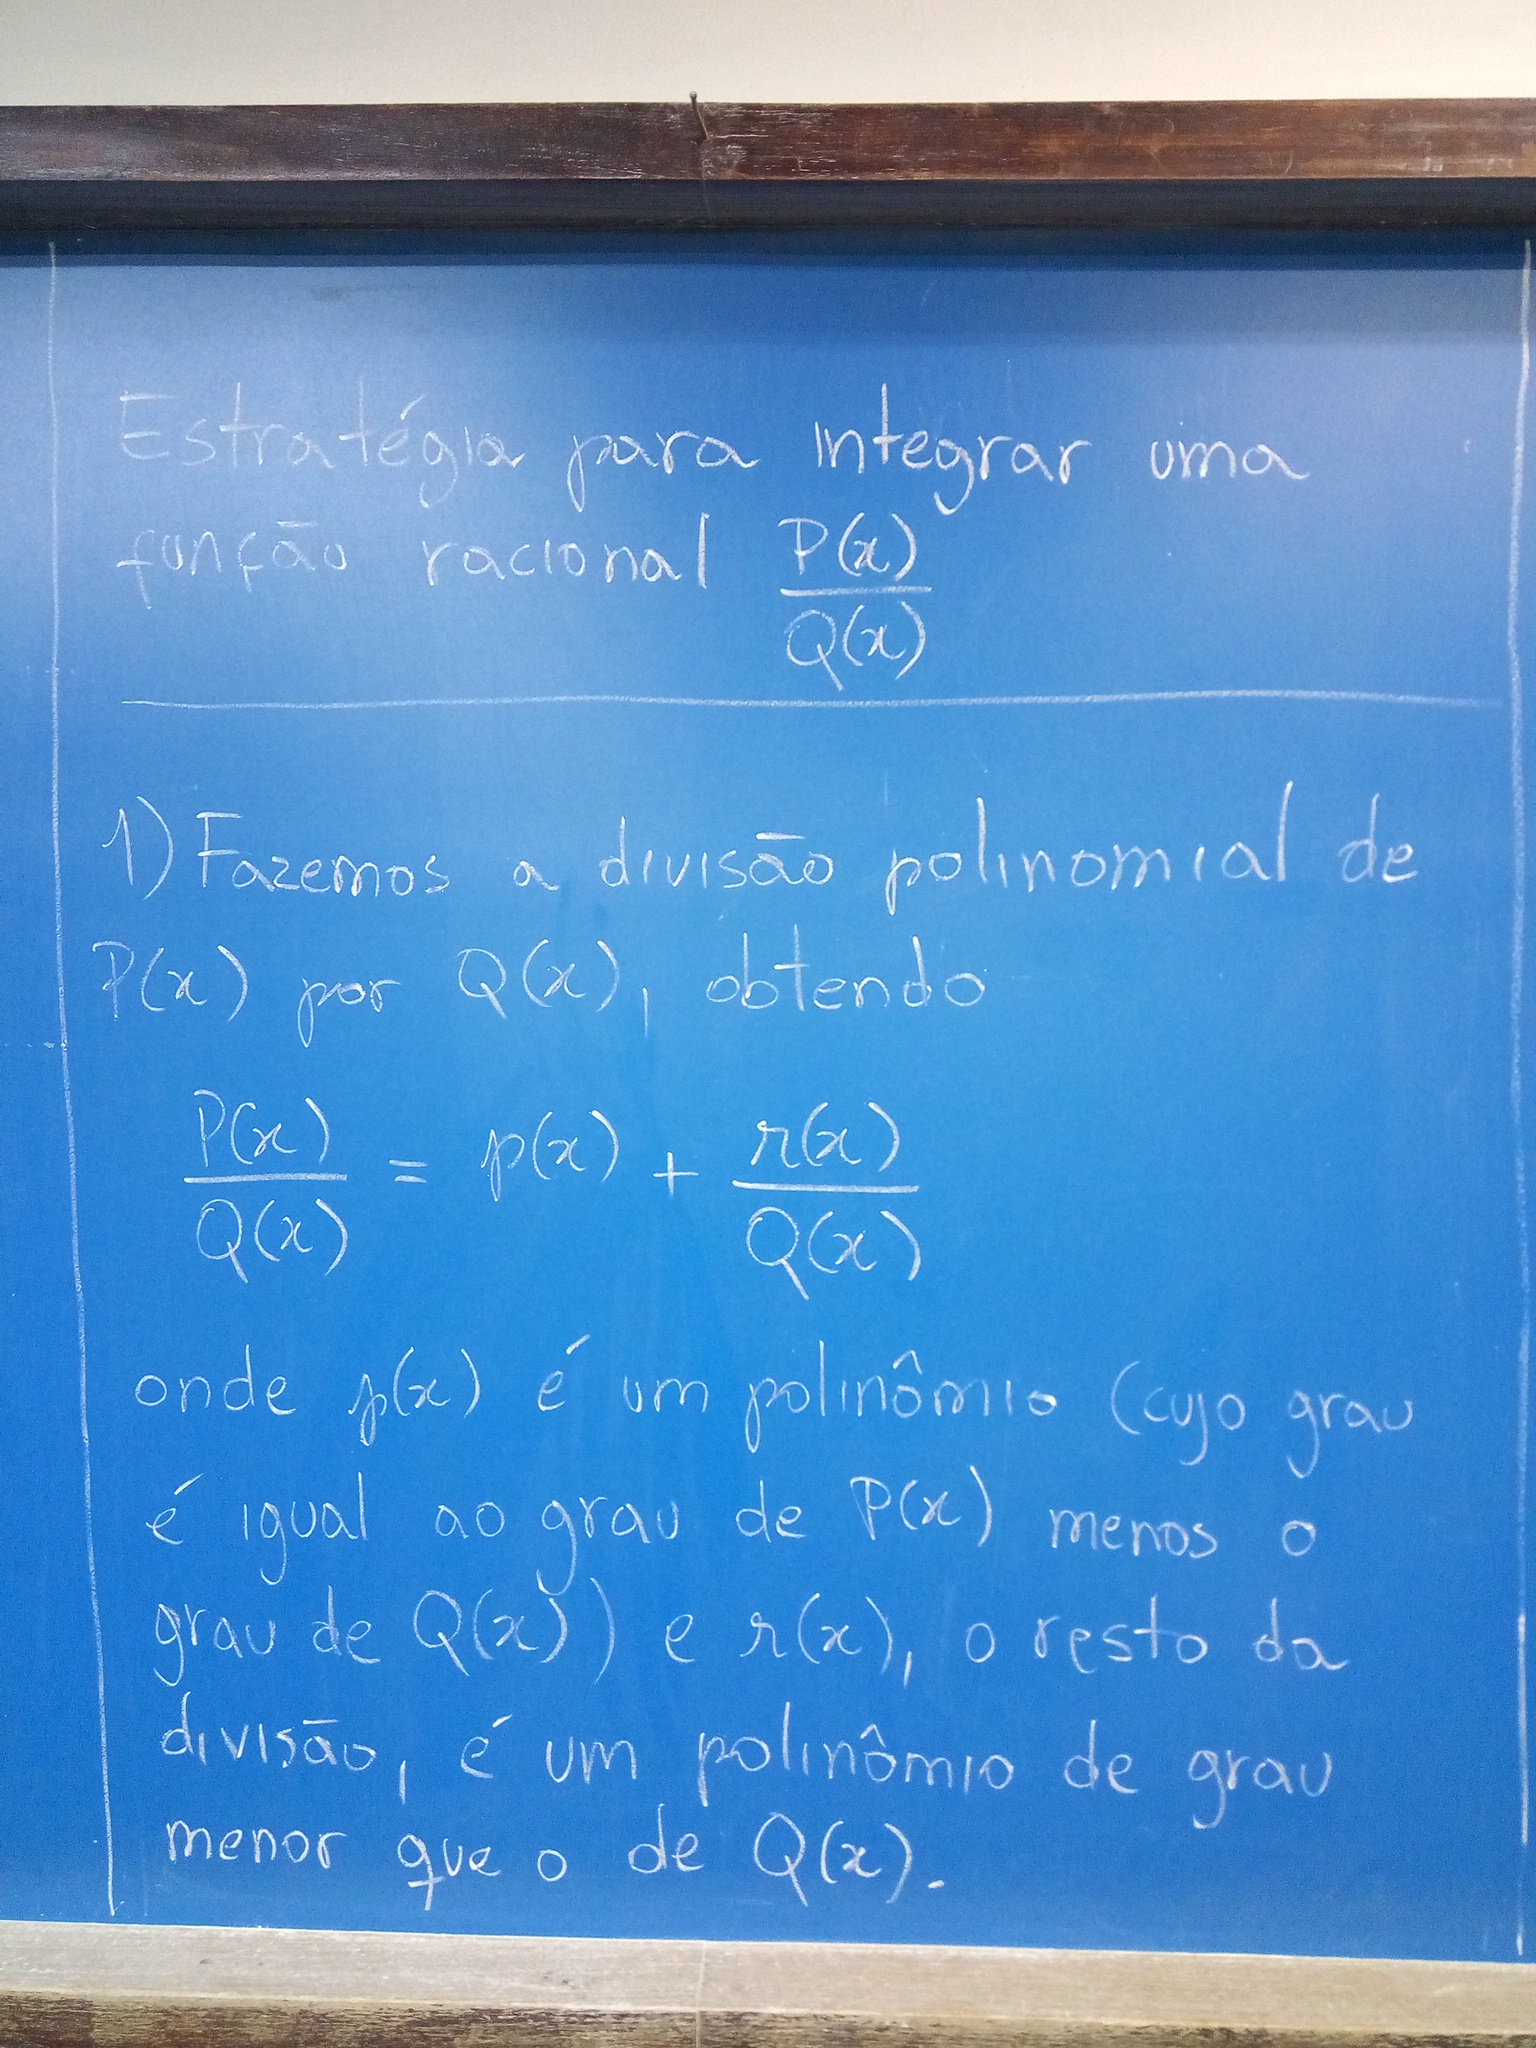 Estratégia para integrar uma
função racional P(x)/Q(x)
1) Fazemos a divisão polinomial de
P(x) por Q(x), obtendo
P(x)/Q(x) = p(x) + r(x)/Q(x)
onde p(x) é um polinômio (cujo grau
é igual ao grau de P(x) menos o
grau de Q(x)) e r(x), o resto da
divisão, é um polinômio de grau
menor que o de Q(x).